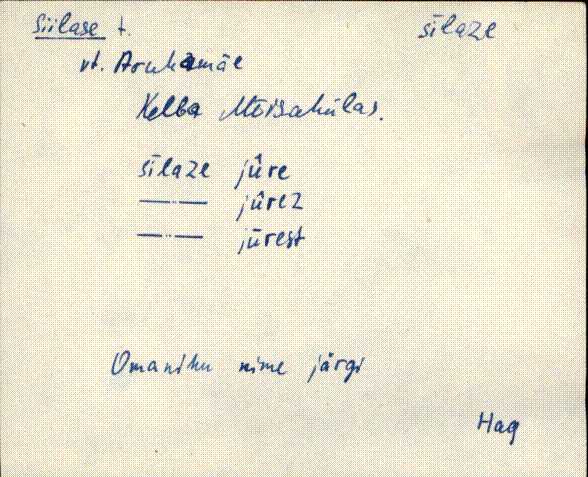 Siilase t. sīlaze
vt. Aruhamäe
Kelba Moisakülas.
sīlaze jûre
—··— jûrez
—··— jūrest
Omaniku nime järgi
Hag